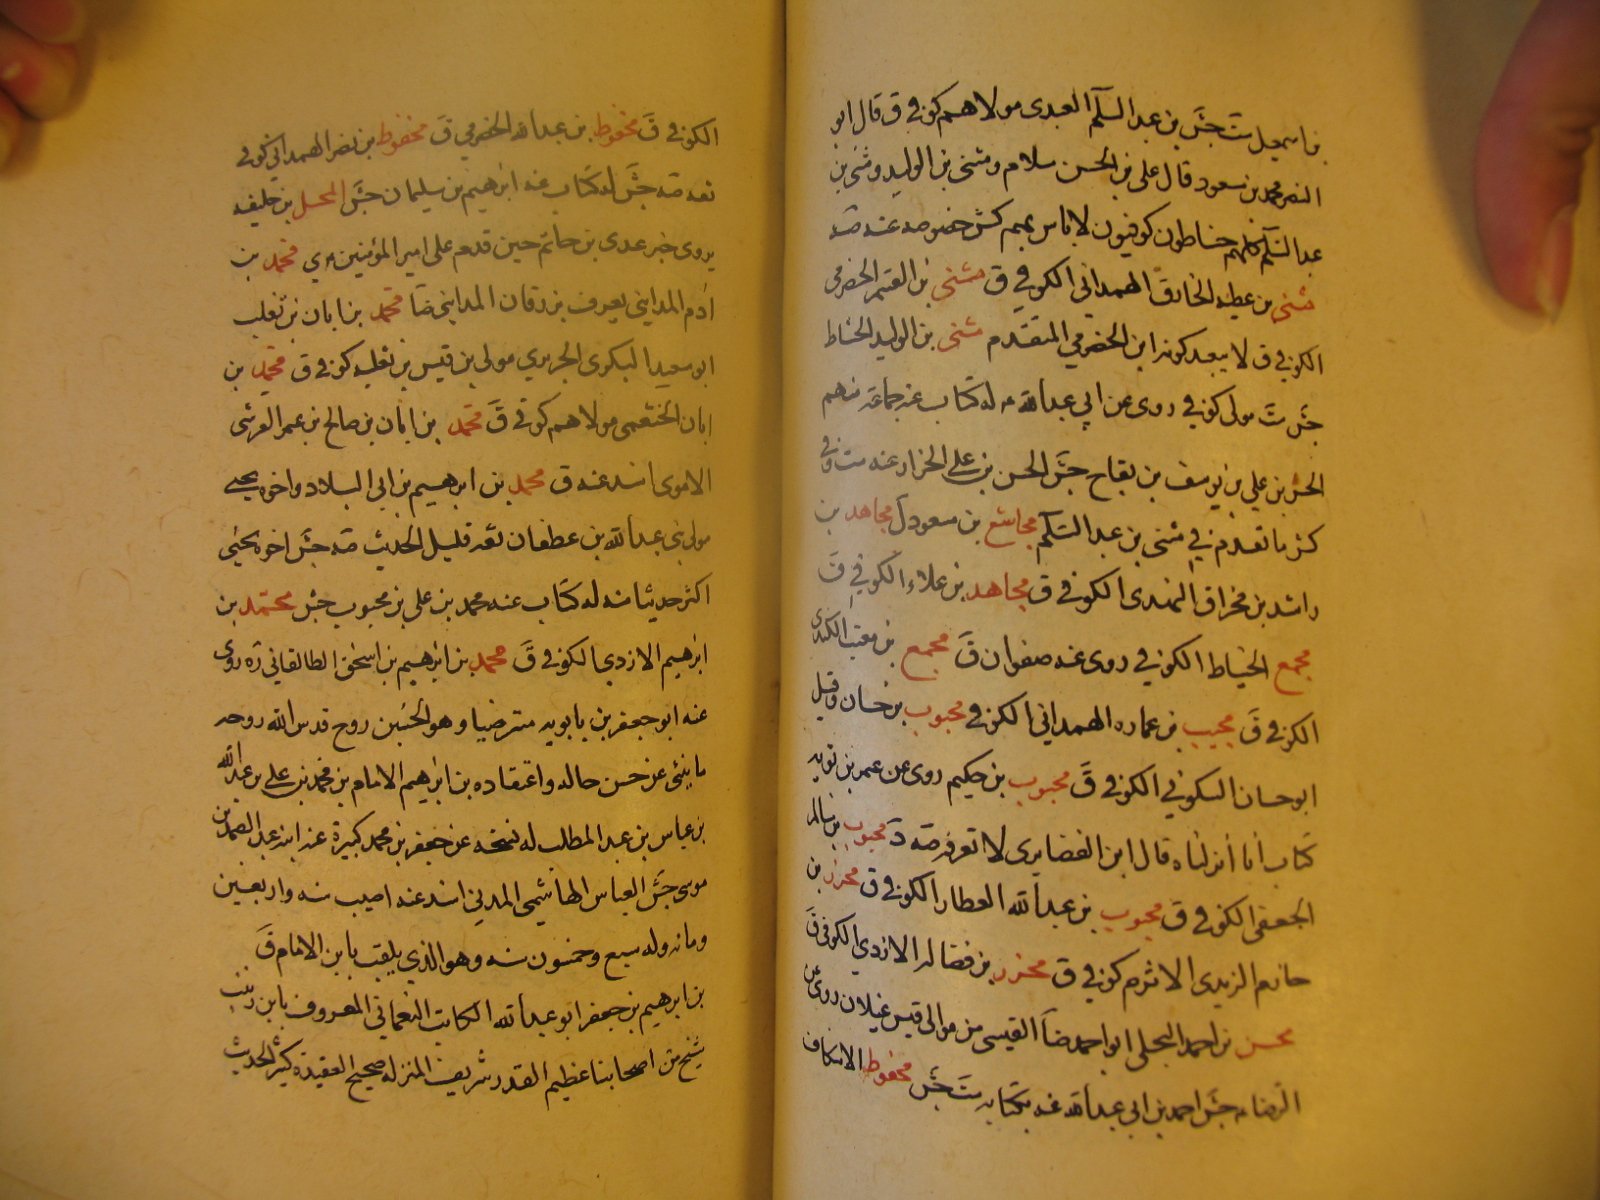 بن اسمعيل ست جش بن عبد السلم العبدى مولاهم كوفى ق قال ابو
النصر محمد بن مسعود قال على بن الحسن سلام ومثنى بن الوليد ومثنى بن
عبد السلم كلهم حناطون كوفيون لا باس بهم كش حضر صه عنه صه
مثنى بن عطيه الخارقى الهمداني الكوفي ق مثنى بن القسم الحضرمى
الكوفي ق لا يبعد كونه ابن الحضرمي المتقدم مثنى بن الوليد الحناط
جش ست مولى كوفي روى عن ابي عبد الله عه له كتاب عنه جماعة منهم
الحسن بن علي بن يوسف بن بقاح جش الحسن بن علي الخزاز عنه ست وفى
كش ما تقدم في مثنى بن عبد السلم مجاشع بن مسعود ل مجاهد بن
راشد بن مخراق النهدى الكوفى ق مجاهد بن علاء الكوفي ق
مجمع الخياط الكوفي روى عنه صفوان ق مجمع بن معتب الكندى
الكوفي ق مجيب بن عماره الهمداني الكوفي محبوب بن حسان وقيل
ابو حسان السكوني الكوفى ق محبوب بن حكيم روى عن عمر بن توبه
كتاب انا انزلناه قال ابن الغضايرى لا نعرفه صه د محبوب بن سالم
الجعفى الكوفى ق محبوب بن عبد الله العطار الكوفى ق محرز بن
حازم الزيدى الاثرم كوفي ق محرز بن فضاله الازدي الكوفى ق
محسن بن احمد البجلى ابو احمد ضا القيسى من موالى قيس غيلان روى عن
الرضا عه جش احمد بن ابى عبد الله عنه بكتابه ست جش محفوظ الاسكاف
الكوفي ق محفوظ بن عبد الله الحضرمي ق محفوظ بن نصر الهمداني كوفى
ثقه صه جش له كتاب عنه ابرهيم بن سليمان جش المحل بن خليفه
يروى خبر عدى بن حاتم حين قدم على امير المؤمنين ى محمد بن
ادم المدايني يعرف بزرقان المدايني ضا محمد بن ابان بن تغلب
ابو سعيد البكرى الجريري مولى بن قيس بن ثعلبه كوفى ق محمد بن
ابان الخثعمى مولاهم كوفى ق محمد بن ابان بن صالح بن عمر القرشى
الاموى اسند عنه ق محمد بن ابرهيم بن ابي البلاد واخوه يحيى
مولى بنى عبد الله بن غطفان ثقه قليل الحديث صه جش اخوه يحيى
اكثر حديثا منه له كتاب عنه محمد بن على بن محبوب جش محمد بن
ابرهيم الازدي الكوفى ق محمد بن ابرهيم بن اسحق الطالقاني ره روى
عنه ابو جعفر بن بابويه مترضيا وهو الحسين روح قدس الله روحه
ما ينبئ عن حسن حاله واعتقاده بن ابرهيم الامام بن محمد بن علي بن عبد الله
بن عباس بن عبد المطلب له نسخه عن جعفر بن محمد كبيرة عنه ابنه عبد الصمد بن
موسى جش العباس الهاشمى المدني اسند عنه اصيب سنه واربعين
ومائه وله سبع وخمسون سنه وهو الذي يلقب بابن الامام ق
بن ابرهيم بن جعفر ابو عبد الله الكاتب النعماني المعروف بابن زينب
شيخ من اصحابنا عظيم القدر شريف المنزله صحيح العقيدة كثير الحديث